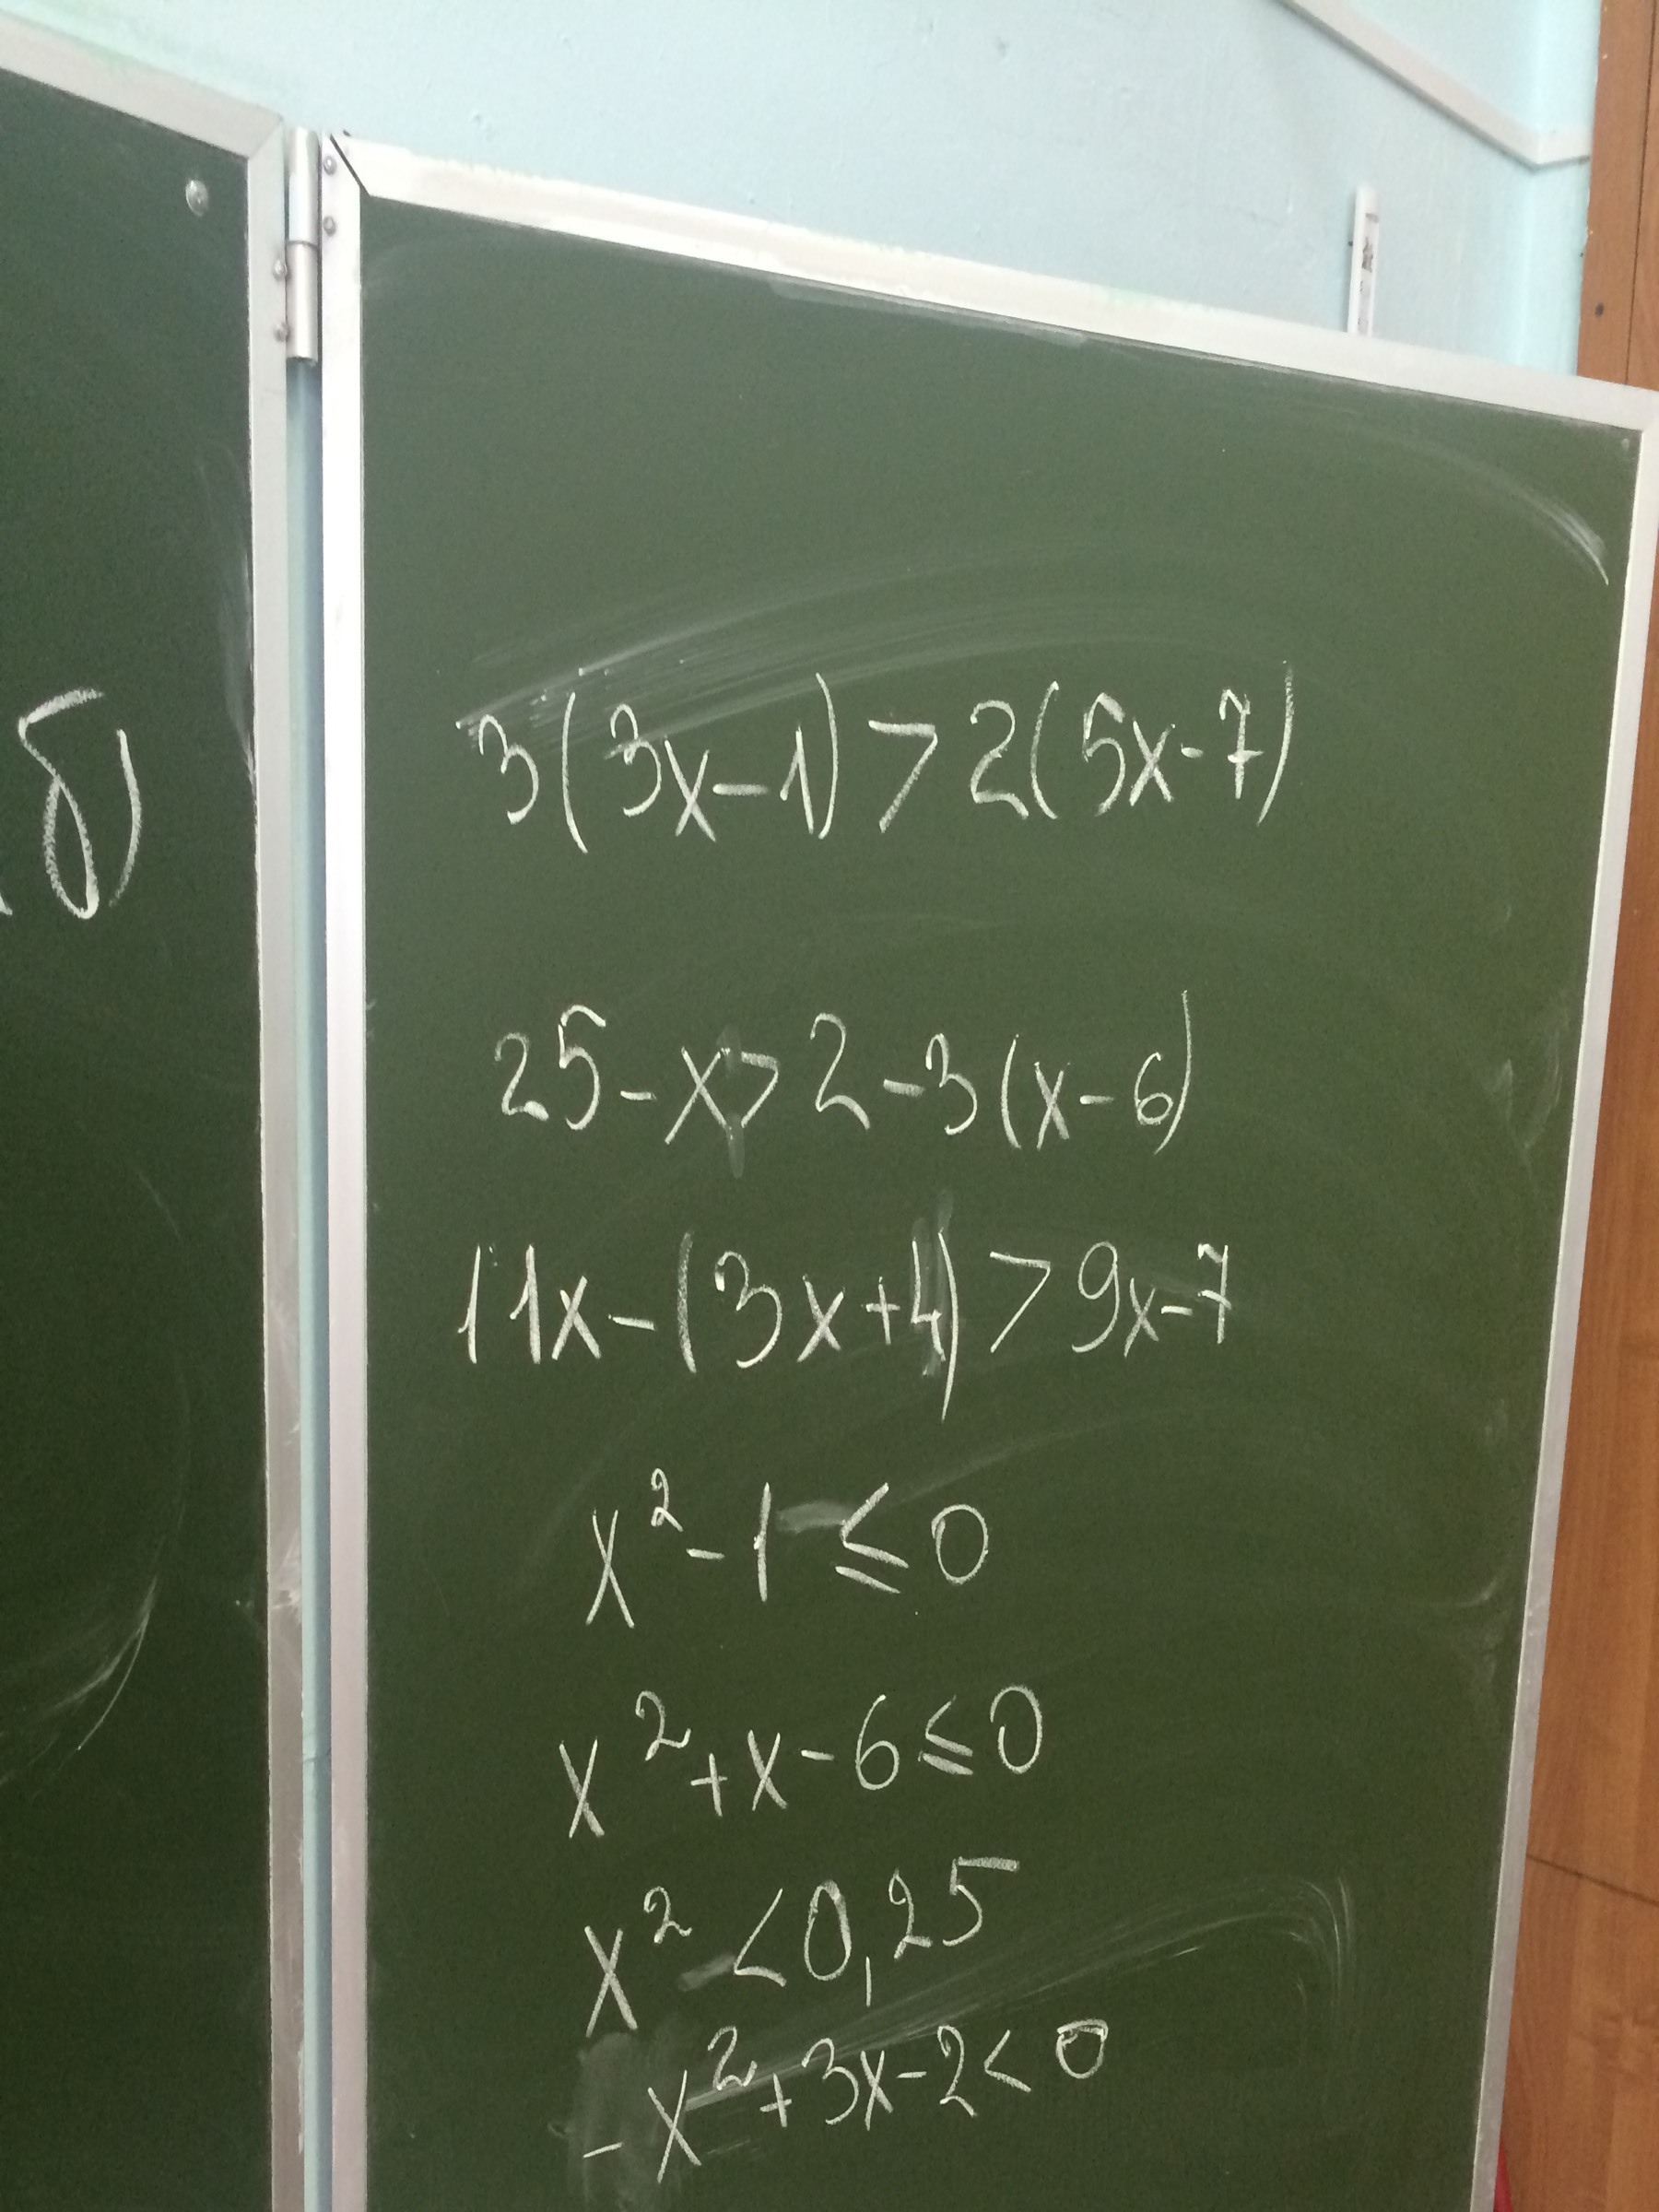 б)
3(3x-1)>2(5x-7)
25-x>2-3(x-6)
11x-(3x+4)>9x-7
x²-1≤0
x²+x-6≤0
x²<0,25
-x²+3x-2<0